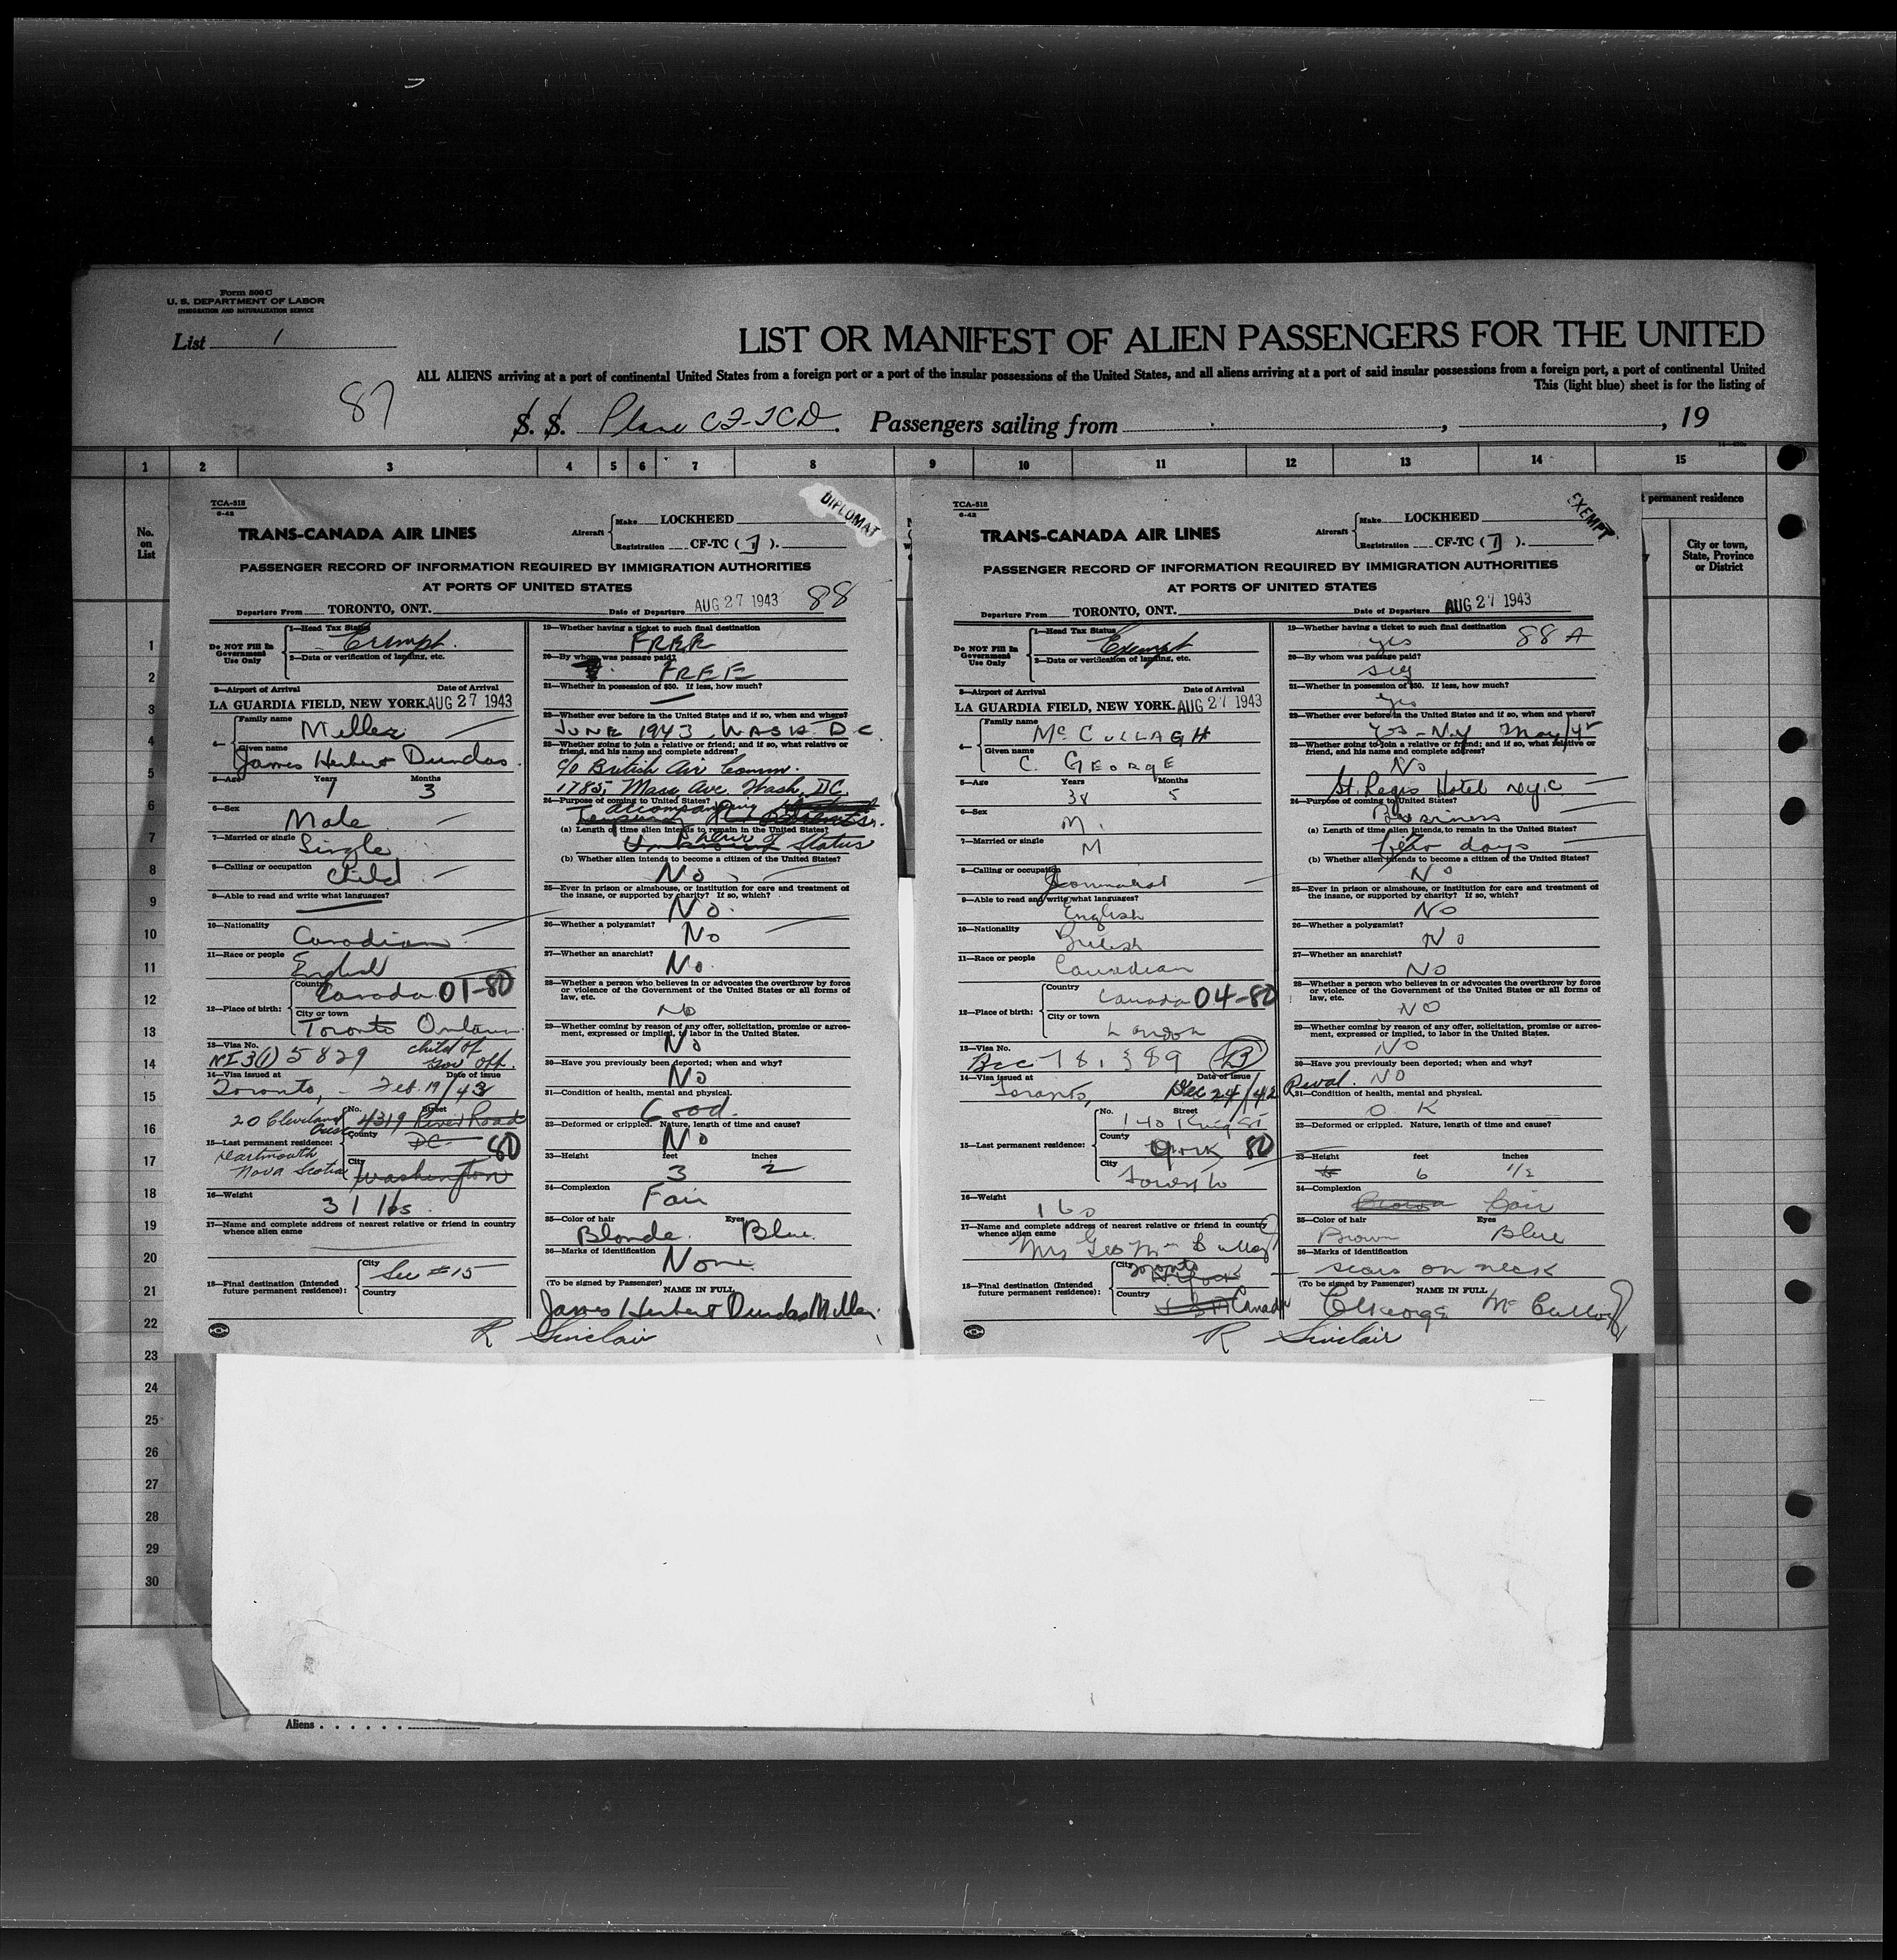 Form 500 C
U. S. DEPARTMENT OF LABOR
IMMIGRATION AND NATURALIZATION SERVICE
List 1
LIST OR MANIFEST OF ALIEN PASSENGERS FOR THE UNITED
ALL ALIENS arriving at a port of continental United States from a foreign port or a port of the insular possessions of the United States, and all aliens arriving at a port of said insular possessions from a foreign port, a port of continental United
This (light blue) sheet is for the listing of
87
S. S. Plane CF-TCD. Passengers sailing from , , 19
1 2 3 4 5 6 7 8 9 10 11 12 13 14 15
No. on List
permanent residence
City or town, State, Province or District
1
2
3
4
5
6
7
8
9
10
11
12
13
14
15
16
17
18
19
20
21
22
23
24
25
26
27
28
29
30
Aliens
TCA-518
6-42
DIPLOMAT
TRANS-CANADA AIR LINES
Aircraft Make LOCKHEED
Registration CF-TC ( ).
PASSENGER RECORD OF INFORMATION REQUIRED BY IMMIGRATION AUTHORITIES
AT PORTS OF UNITED STATES
88
Departure From TORONTO, ONT. Date of Departure AUG 27 1943
Do NOT Fill In Government Use Only
1—Head Tax Status Exempt.
2—Data or verification of landing, etc.
3—Airport of Arrival Date of Arrival
LA GUARDIA FIELD, NEW YORK. AUG 27 1943
4— Family name Miller
Given name James Herbert Dundas.
5—Age Years 1 Months 3
6—Sex Male
7—Married or single Single
8—Calling or occupation Child
9—Able to read and write what languages?
10—Nationality Canadian
11—Race or people English
12—Place of birth: Country Canada 01-80
City or town Toronto Ontario
13—Visa No. NI 3(1) 5829 child of Gov Off.
14—Visa issued at Date of issue
Toronto, - Feb. 19/43
15—Last permanent residence: No. Street 4319 River Road
20 Cleveland Cres
Dartmouth
Nova Scotia
County DC 80
City Washington
16—Weight 31 lbs.
17—Name and complete address of nearest relative or friend in country whence alien came
18—Final destination (Intended future permanent residence): City See #15
Country
19—Whether having a ticket to such final destination
FREE
20—By whom was passage paid?
FREE
21—Whether in possession of $50. If less, how much?
22—Whether ever before in the United States and if so, when and where?
JUNE 1943, WASH D.C.
23—Whether going to join a relative or friend; and if so, what relative or friend, and his name and complete address?
c/o British Air Comm.
1785, Mass Ave. Wash, DC.
24—Purpose of coming to United States?
accompanying
(a) Length of time alien intends to remain in the United States?
Status
(b) Whether alien intends to become a citizen of the United States?
No
25—Ever in prison or almshouse, or institution for care and treatment of the insane, or supported by charity? If so, which?
No.
26—Whether a polygamist?
No
27—Whether an anarchist?
No.
28—Whether a person who believes in or advocates the overthrow by force or violence of the Government of the United States or all forms of law, etc.
No
29—Whether coming by reason of any offer, solicitation, promise or agreement, expressed or implied, to labor in the United States?
No
30—Have you previously been deported; when and why?
No
31—Condition of health, mental and physical.
Good.
32—Deformed or crippled. Nature, length of time and cause?
No
33—Height feet 3 inches 2
34—Complexion Fair
35—Color of hair Blonde. Eyes Blue.
36—Marks of identification None
(To be signed by Passenger) NAME IN FULL
James Herbert Dundas Miller.
R Sinclair
TCA-518
6-42
EXEMPT
TRANS-CANADA AIR LINES
Aircraft Make LOCKHEED
Registration CF-TC ( ).
PASSENGER RECORD OF INFORMATION REQUIRED BY IMMIGRATION AUTHORITIES
AT PORTS OF UNITED STATES
Departure From TORONTO, ONT. Date of Departure AUG 27 1943
Do NOT Fill In Government Use Only
1—Head Tax Status Exempt
2—Data or verification of landing, etc.
3—Airport of Arrival Date of Arrival
LA GUARDIA FIELD, NEW YORK. AUG 27 1943
4— Family name McCULLAGH
Given name C. GEORGE
5—Age Years 38 Months 5
6—Sex M.
7—Married or single M
8—Calling or occupation Journalist
9—Able to read and write what languages? English
10—Nationality British
11—Race or people Canadian
12—Place of birth: Country Canada 04-80
City or town London
13—Visa No. Bcc 89 B
14—Visa issued at Date of issue
Toronto, Dec 24/42 Reval.
15—Last permanent residence: No. Street 140 King St
County York 80
City Toronto
16—Weight 160
17—Name and complete address of nearest relative or friend in country whence alien came
Mrs Geo McCullagh
18—Final destination (Intended future permanent residence): City Toronto N. York
Country U S A Canada
19—Whether having a ticket to such final destination
yes 88 A
20—By whom was passage paid?
self
21—Whether in possession of $50. If less, how much?
yes
22—Whether ever before in the United States and if so, when and where?
Yes - N.Y May/42
23—Whether going to join a relative or friend; and if so, what relative or friend, and his name and complete address?
No
St. Regis Hotel N.Y.C
24—Purpose of coming to United States?
Business
(a) Length of time alien intends to remain in the United States?
few days
(b) Whether alien intends to become a citizen of the United States?
No
25—Ever in prison or almshouse, or institution for care and treatment of the insane, or supported by charity? If so, which?
No
26—Whether a polygamist?
No
27—Whether an anarchist?
NO
28—Whether a person who believes in or advocates the overthrow by force or violence of the Government of the United States or all forms of law, etc.
NO
29—Whether coming by reason of any offer, solicitation, promise or agreement, expressed or implied, to labor in the United States?
NO
30—Have you previously been deported; when and why?
NO
31—Condition of health, mental and physical.
O K
32—Deformed or crippled. Nature, length of time and cause?
33—Height feet 6 inches 1/2
34—Complexion Fair
35—Color of hair Brown Eyes Blue
36—Marks of identification scars on neck
(To be signed by Passenger) NAME IN FULL
C George McCullagh
R Sinclair